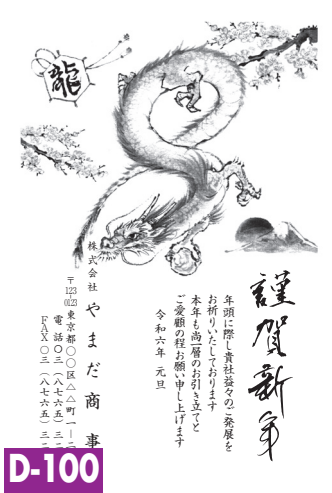 龍
謹賀新年
年頭に際し貴社益々のご発展を
お祈りいたしております
本年も尚一層のお引き立てと
ご愛顧の程お願い申し上げます
令和六年 元旦
株式会社 やまだ商事
〒123-0123 東京都〇〇区△△町一ー二
電話〇三(八七六五)三二
FAX〇三(八七六五)三二
D-100